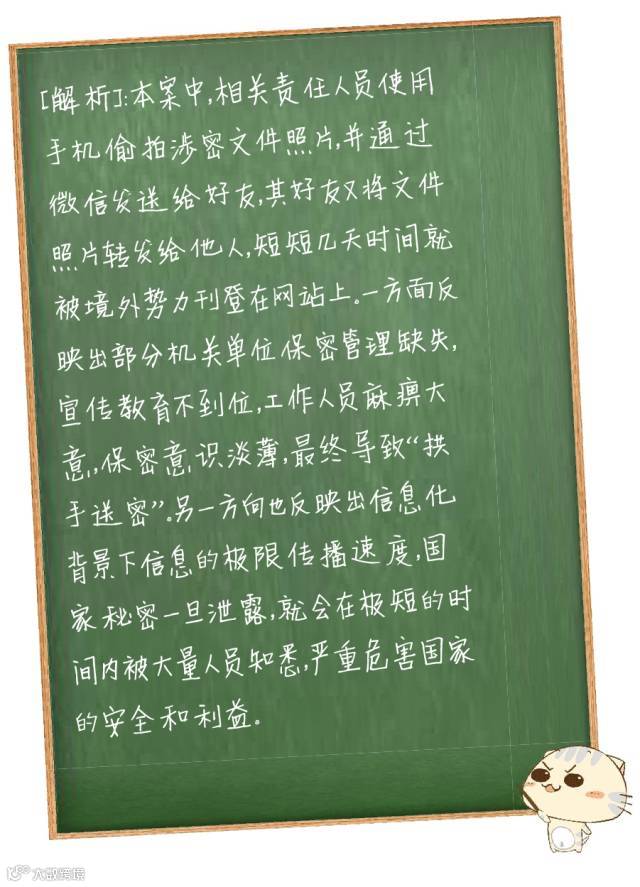 [解析]:本案中,相关责任人员使用
手机偷拍涉密文件照片,并通过
微信发送给好友,其好友又将文件
照片转发给他人,短短几天时间就
被境外势力刊登在网站上。一方面反
映出部分机关单位保密管理缺失,
宣传教育不到位,工作人员麻痹大
意,保密意识淡薄,最终导致“拱
手送密”。另一方向也反映出信息化
背景下信息的极限传播速度,国
家秘密一旦泄露,就会在极短的时
间内被大量人员知悉,严重危害国家
的安全和利益。
大数跨境